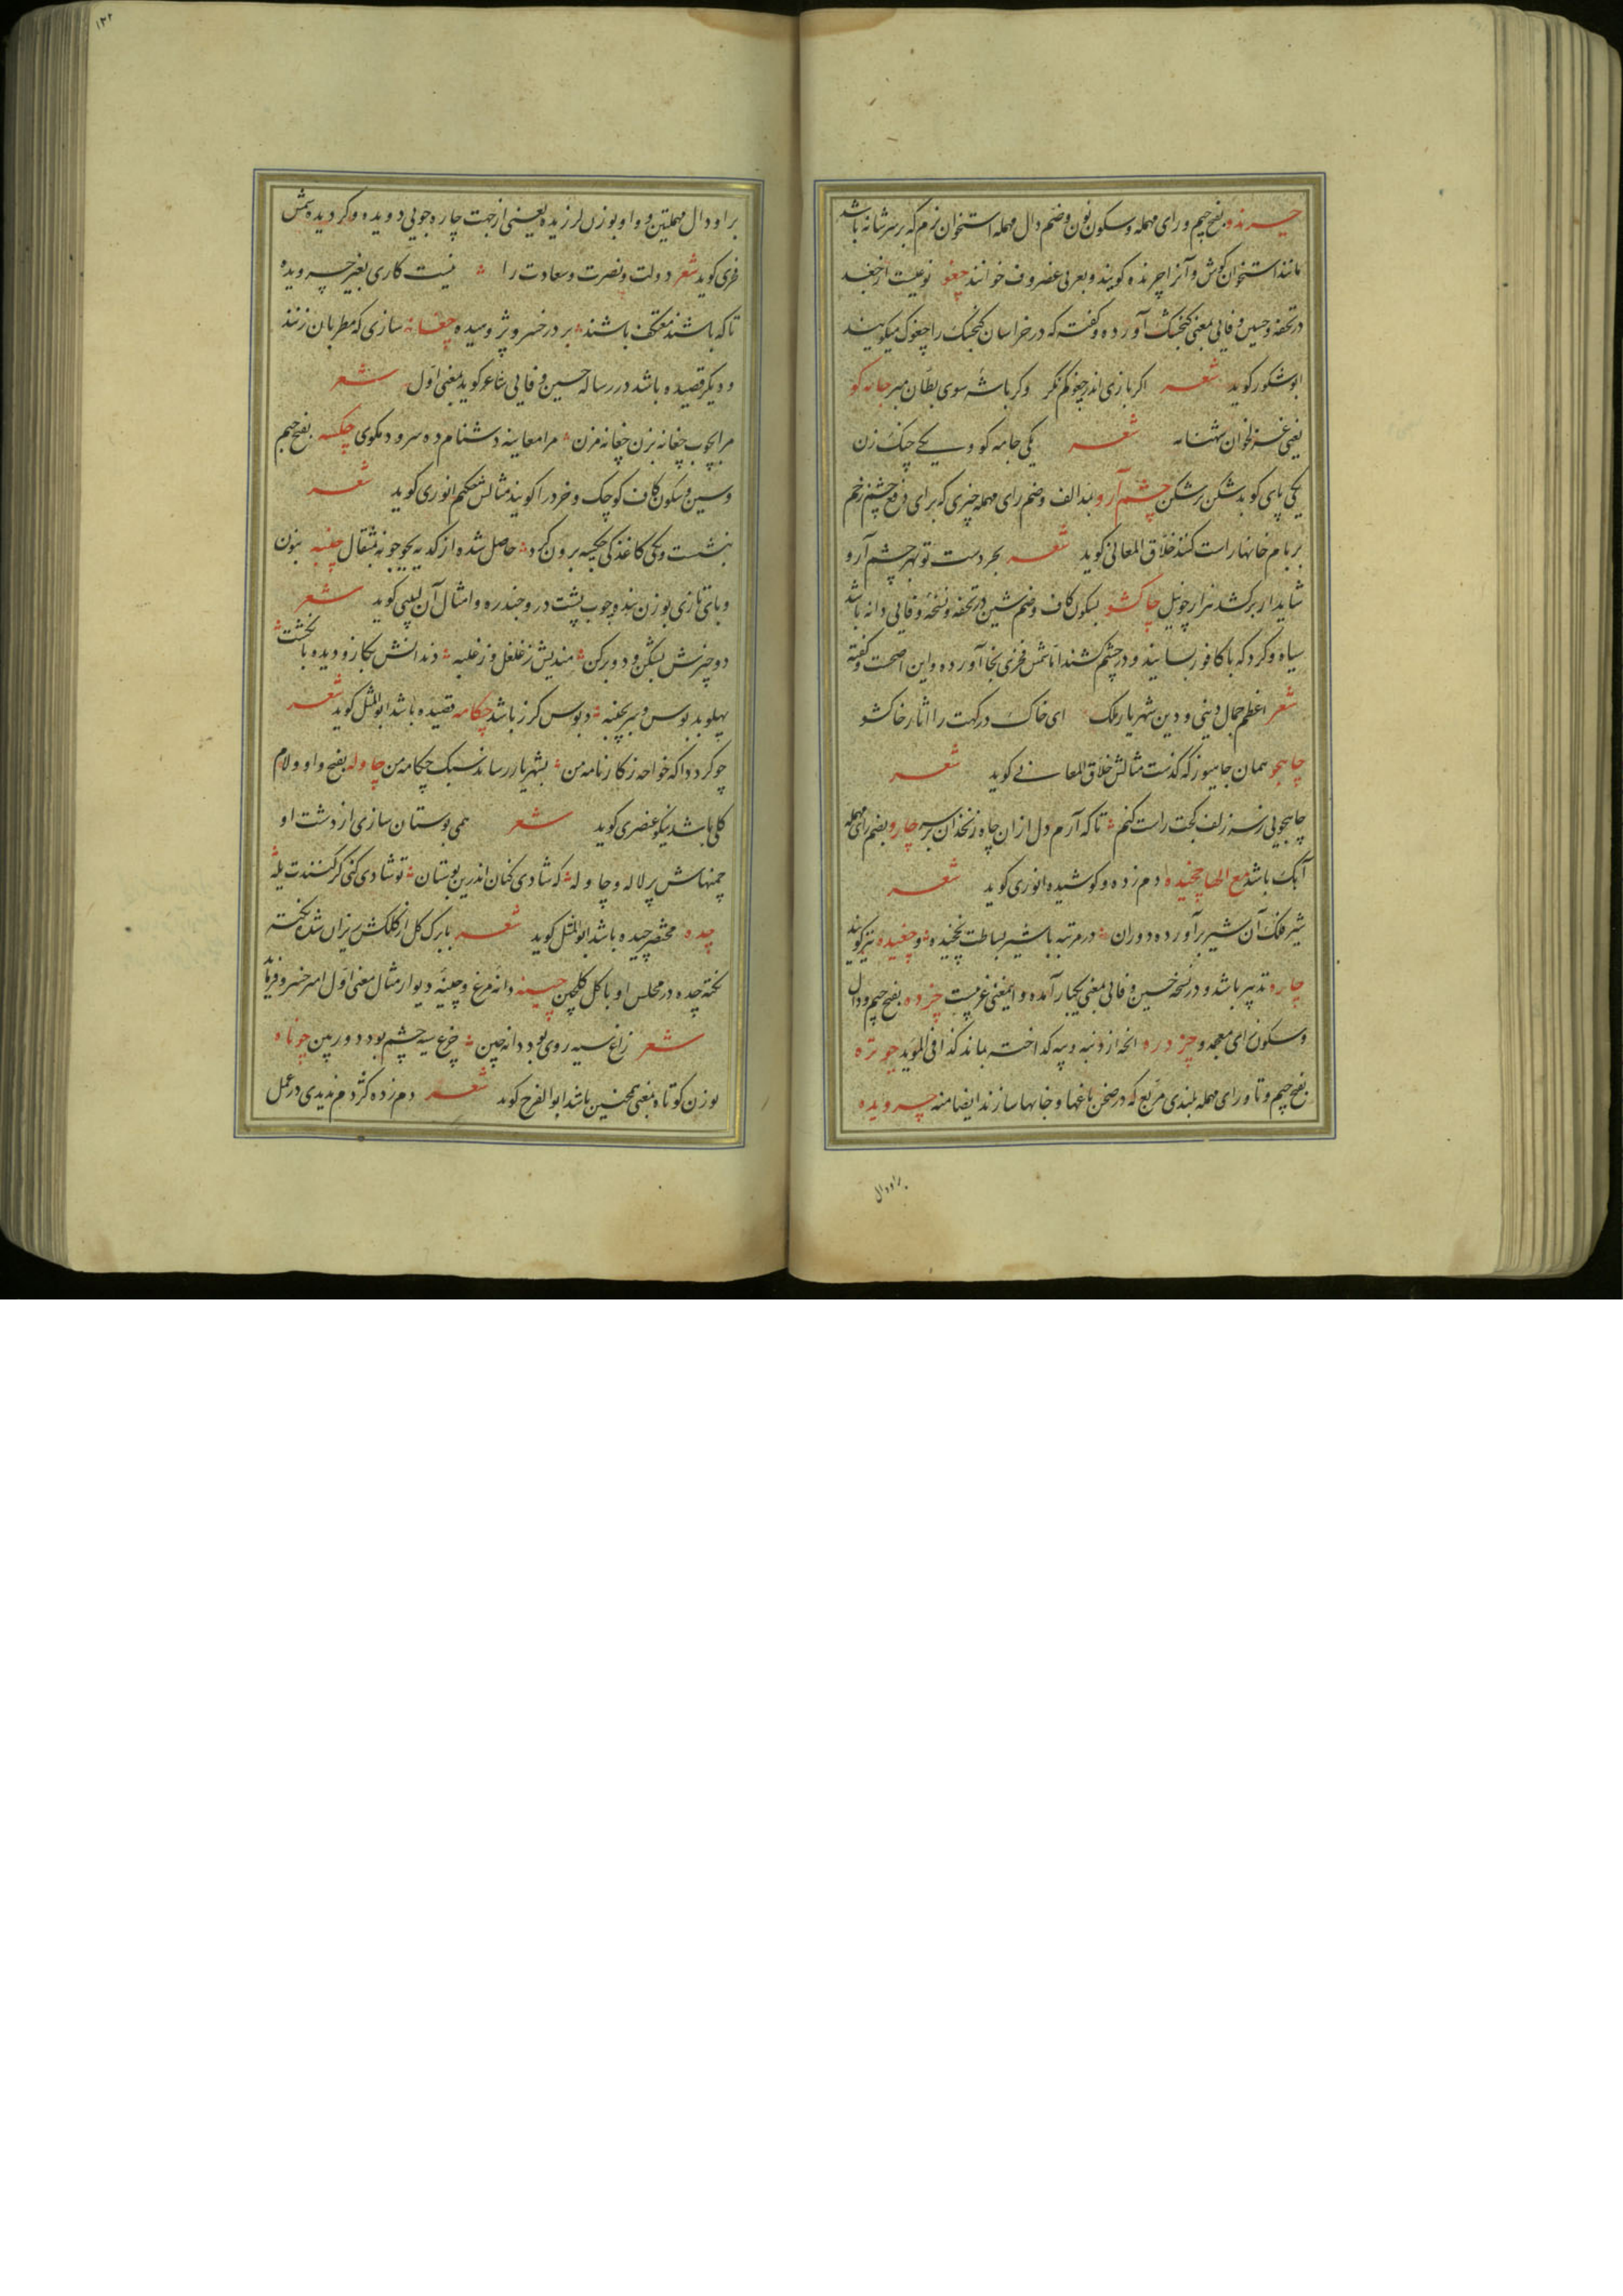 چرندو بفتح جیم و رای مهمله و سکون نون و ضم دال مهمله استخوان نرم که بر سر شانه باشد
مانند استخوان گوش و آنرا چرنده گویند و بعربی غضروف خوانند چغو نوعیست از جغد
در تحفه و حسین وفایی بمعنی گنجشک آورده و گفته که در خراسان گنجشک را چغوک میگویند
ابوشکور گوید شعر اگر بازی اندر چغو کم نگر وگر باشه سوی بطان مپر جامه گو
یعنی غزلخوان شعر یکی جامه گو و یکی چنگ زن
یکی پای کوبد شکن بر شکن چشم آرو بمد الف و ضم رای مهمله چیزی که برای دفع چشم زخم
بر بام خانها راست کنند خلاق المعانی گوید شعر بجر دست تو بهر چشم آرو
شاید ار برکشد نزار چو نیل چاکشو بسکون کاف و ضم شین در تحفه و نسخه وفایی دانه باشد
سیاه و گرد که با کافور بسایند و در چشم کشند اما شمس فخری بخا آورده و این اصحت و گفته
شعر اعظم جمال دینی و دین شهریار ملک ای خاک درگهت را آثار خاکشو
چاپجو همان جامیوز که گذشت مثالش خلاق المعانی گوید شعر
چاپجویی رسر زلف کجت راست کنم تا که آرم دل ازان چاه زنخدان بر سر چارو بضم رای مهمله
آهک باشد مع الها چخیده دم زده و کوشیده انوری گوید شعر
شیر فلک آن شیر برآورده دوران در مرتبه با شیر بساطت نچخیده و چغیده نیز گویند
چاره تدبیر باشد و در نسخه حسین وفایی بمعنی یکبار آمده و اینمعنی غریبست چزده بفتح جیم و دال
و سکون زای معجمه و چزدره انچه از دنبه و پیه گداخته بماند کذا فی المؤید چوتره
بفتح جیم و تا و رای مهمله بلندی مربع که در صحن باغها و خانها سازند ایضا منه چرویده
براودال
۱۳۲
برا و دال مهملتین و واو بوزن لرزیده یعنی از جهت چاره جویی دویده و گردیده شمس
فخری گوید شعر دولت و نصرت و سعادت را نیست کاری بغیر چرویده
تا که باشند معتکف باشند بر در خسرو پژومیده چغانه سازی که مطربان زنند
و دیگر قصیده باشد در رساله حسین وفایی شاعر گوید بمعنی اول شعر
مرا بچوب چغانه بزن چغانه مزن مرا معاینه دشنام ده سرود مگوی چکسه بفتح جیم
و سین و سکون کاف کوچک و خرد را گویند مثالش حکیم انوری گوید شعر
بنشست و یکی کاغذکی چکسه برون کرد حاصل شده از کدیه بجوجو نه بمثقال چنبه بنون
و بای تازی بوزن پنبه چوب پشت در و جندره و امثال آن لبیبی گوید شعر
دو چیزش بشکن و دو برکن مندیش ز غلغل و ز غلبه دندانش بگاز و دیده بانگشت
پهلو بدبوس و سر بچنبه دبوس گرز باشد چکامه قصیده باشد ابوالمثل گوید شعر
چو گردد آگه خواجه ز کارنامه من بشهریار رساند سبک چکامه من چاوله بفتح واو و لام
گلی باشد نیکو عنصری گوید شعر همی بوستان سازی از دشت او
چمنهاش پر لاله و چاوله که شادی کنان اندرین بوستان تو شادی کنی گر کنندت یله
چده مختصر چیده باشد ابوالمثل گوید شعر ببرگ گل از کلکش ریزان شده نخته
نخته چده در مجلس او با گل گلچین چینه دانه مرغ و چینه دیوار مثال معنی اول امیر خسرو فرماید
شعر زاغ سیه روی بود دانه چین چرغ سیه چشم بود دوربین چوناه
بوزن کوتاه بمعنی همچنین باشد ابوالفرج گوید شعر دم زده کژدم ندیدی در عمل